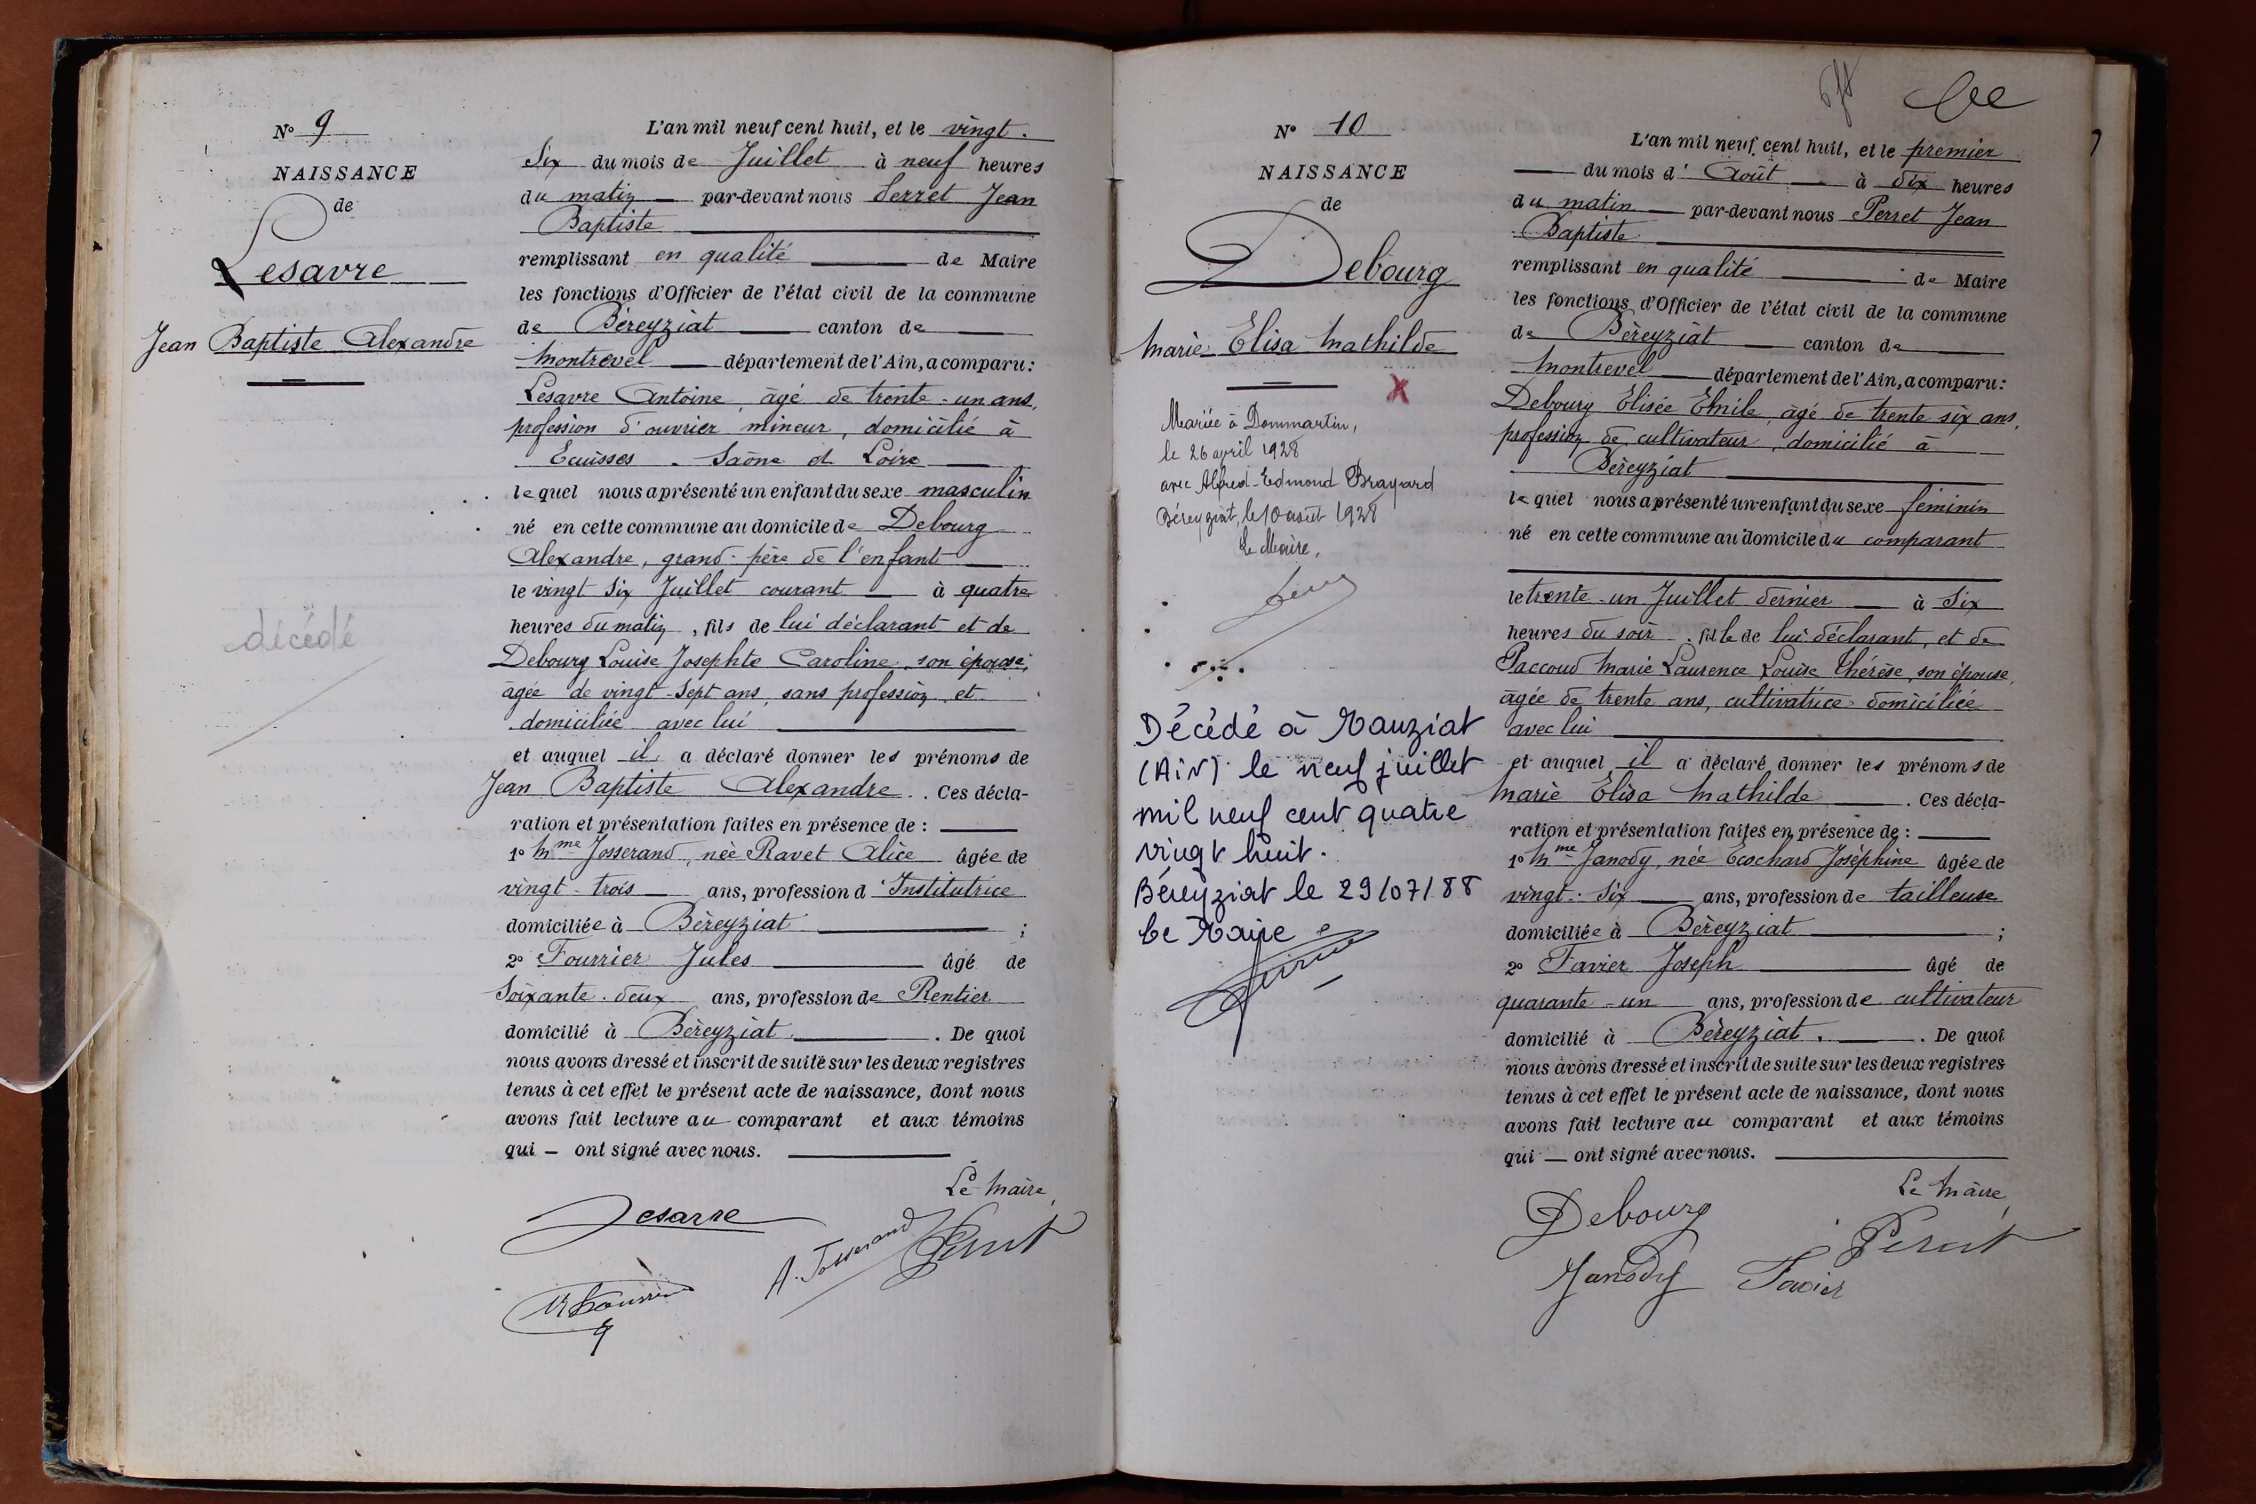 N° 9
NAISSANCE
de
Lesavre
Jean Baptiste Alexandre
décédé
L'an mil neuf cent huit, et le vingt.
Six du mois de Juillet à neuf heures
du matin par-devant nous Perret Jean
Baptiste
remplissant en qualité de Maire
les fonctions d'Officier de l'état civil de la commune
de Béreyziat canton de
Montrevel département de l'Ain, a comparu:
Lesavre Antoine, âgé de trente-un ans,
profession d'ouvrier mineur, domicilié à
Ecuisses - Saône et Loire
lequel nous a présenté un enfant du sexe masculin
né en cette commune au domicile de Debourg
Alexandre, grand-père de l'enfant
le vingt six Juillet courant à quatre
heures du matin, fils de lui déclarant et de
Debourg Louise Josephte Caroline, son épouse,
âgée de vingt-sept ans, sans profession et
domiciliée avec lui
et auquel il a déclaré donner les prénoms de
Jean Baptiste Alexandre. Ces décla-
ration et présentation faites en présence de :
1° Mme Josserand, née Ravet Alice âgée de
vingt-trois ans, profession d'Institutrice
domiciliée à Béreyziat ;
2° Fourrier Jules âgé de
Soixante-deux ans, profession de Rentier
domicilié à Béreyziat. De quoi
nous avons dressé et inscrit de suite sur les deux registres
tenus à cet effet le présent acte de naissance, dont nous
avons fait lecture au comparant et aux témoins
qui - ont signé avec nous.
Le Maire,
Lesavre
A. Josserand
Perret
N° 10
NAISSANCE
de
Debourg
Marie Elisa Mathilde
X
Mariée à Dommartin,
le 26 avril 1928
avec Alfred-Edmond Brayard
Béreyziat, le 10 août 1928
Le Maire,
Décédé à Manziat
(AiN) le neuf juillet
mil neuf cent quatre
vingt huit.
Béreyziat le 29/07/88
Le Maire
L'an mil neuf cent huit, et le premier
du mois d'Août à dix heures
du matin par-devant nous Perret Jean
Baptiste
remplissant en qualité de Maire
les fonctions d'Officier de l'état civil de la commune
de Béreyziat canton de
Montrevel département de l'Ain, a comparu:
Debourg Elisée Emile, âgé de trente six ans,
profession de cultivateur, domicilié à
Béreyziat
lequel nous a présenté un enfant du sexe féminin
né en cette commune au domicile du comparant
le trente-un Juillet dernier à Six
heures du soir. fille de lui déclarant, et de
Paccoud Marie Laurence Louise Thérèse, son épouse,
âgée de trente ans, cultivatrice domiciliée
avec lui
et auquel il a déclaré donner les prénoms de
Marie Elisa Mathilde. Ces décla-
ration et présentation faites en présence de :
1° Mme Janody, née Ecochard Joséphine âgée de
vingt-six ans, profession de tailleuse
domiciliée à Béreyziat ;
2° Favier Joseph âgé de
quarante-un ans, profession de cultivateur
domicilié à Béreyziat. De quoi
nous avons dressé et inscrit de suite sur les deux registres
tenus à cet effet le présent acte de naissance, dont nous
avons fait lecture au comparant et aux témoins
qui — ont signé avec nous.
Le Maire,
Debourg
Perret
Janody Favier